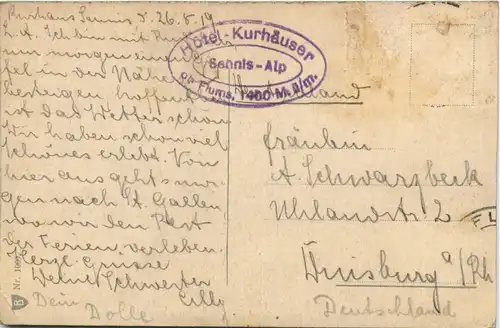 Kurhaus Sennis d. 26.8.19
L. A. Ich bin mit
nun morgen einen
fel in der Nähe
besteigen hoffentl
ist das Wetter schön
Wir haben schon viel
Schönes erlebt. Von
hier aus geht's mor-
gen nach St. Gallen
wo wir den Rest
der Ferien verleben.
Herzl. Grüsse
Deine Schwester
Cilly
Dein Dolle
Hotel-Kurhäuser
Sennis-Alp
ob Flums, 1400 M.ü/m.
Fräulein
A. Schwarzbeck
Uhlandstr. 2
Duisburg a/Rh
Deutschland
B Nr.